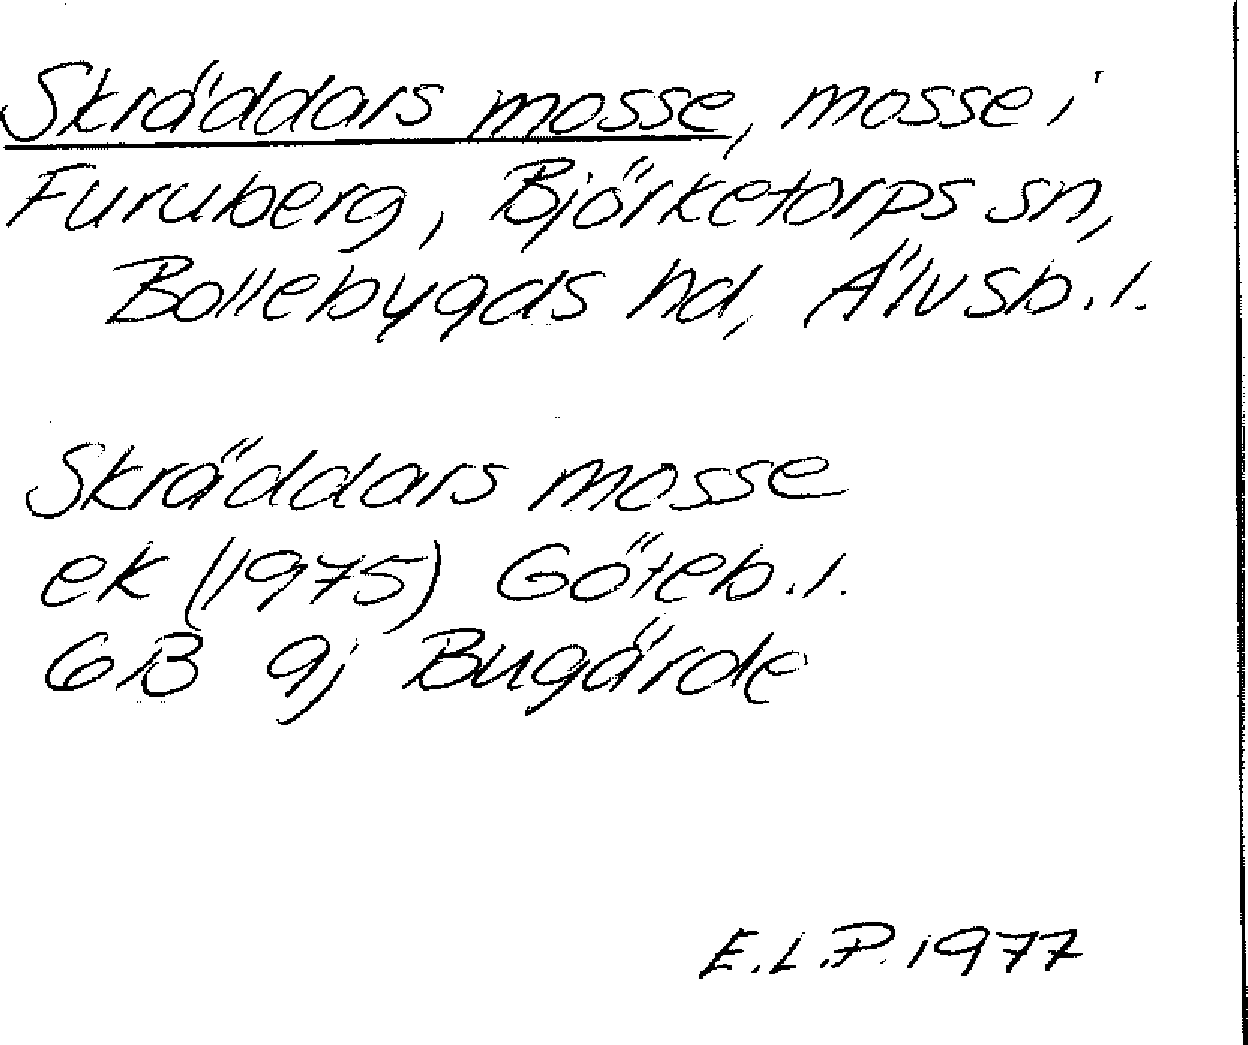 Skräddars mosse, mosse i
Furuberg, Björketorps sn,
Bollebygds hd, Älvsb. l.
Skräddars mosse
ek (1975) Göteb. l.
6B 9j Bugärde
E.L.P. 1977